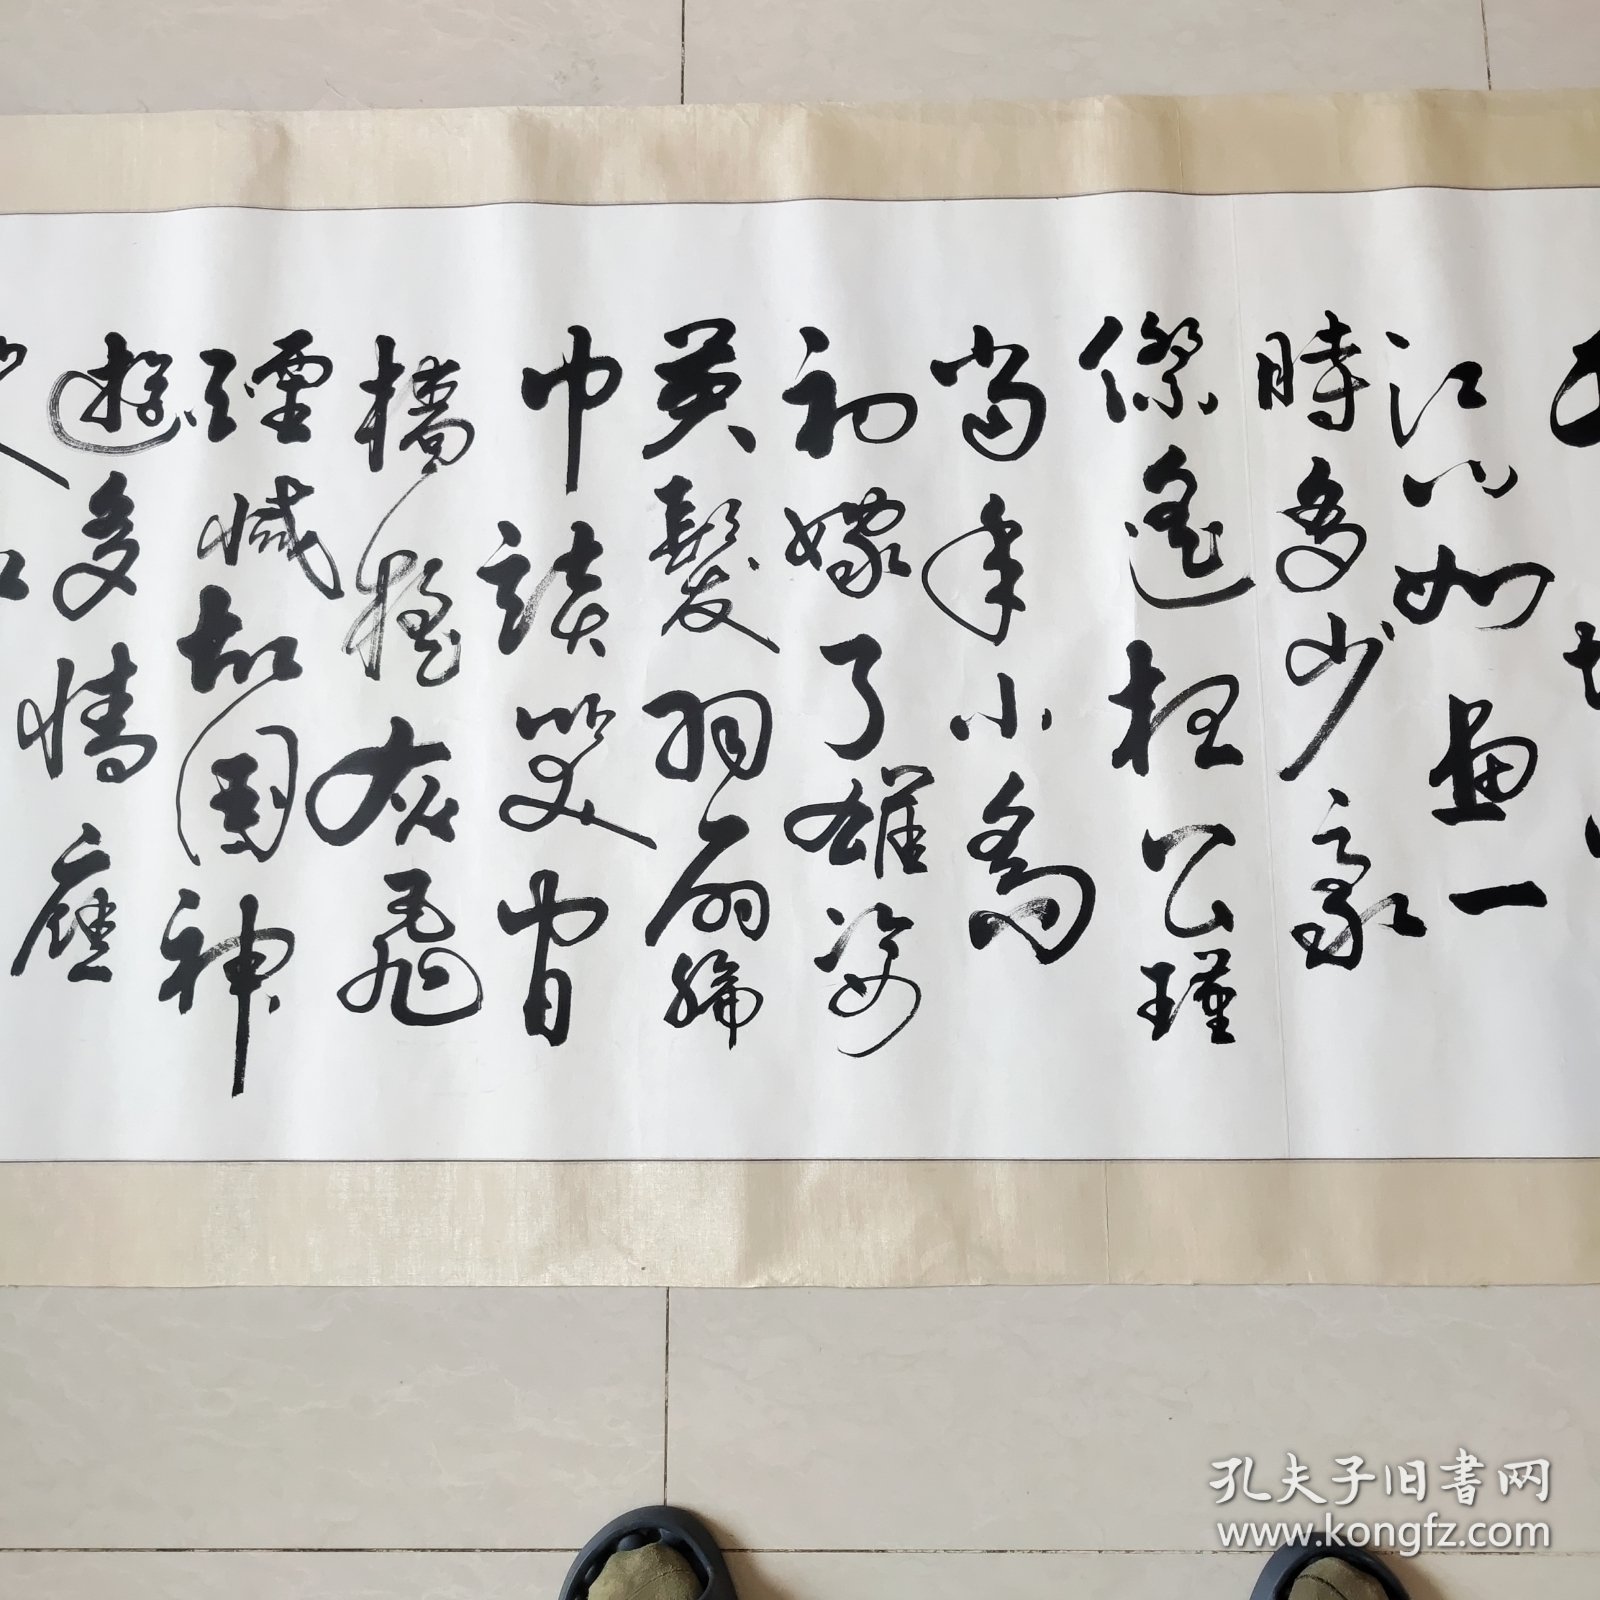 江山如畫一
時多少豪
傑遙想公瑾
當年小喬
初嫁了雄姿
英髮羽扇綸
巾談笑間
檣櫓灰飛
煙滅故國神
遊多情應
孔夫子旧書网
www.kongfz.com